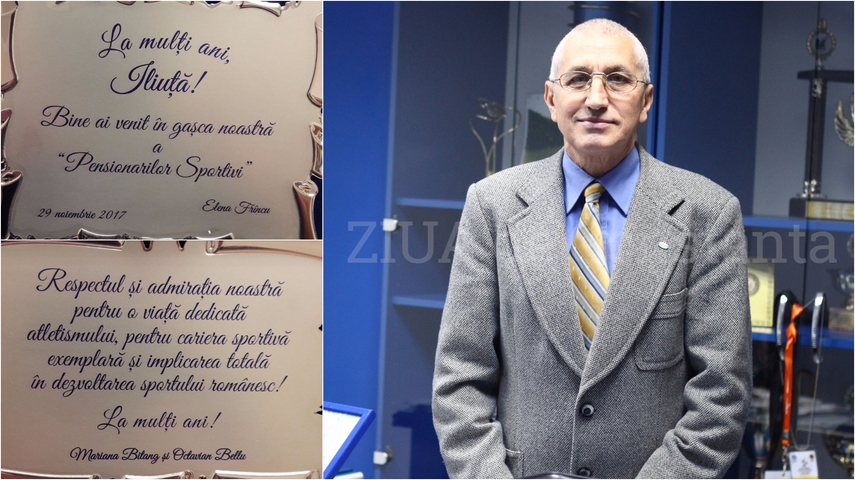 La mulți ani,
Iliuță!
Bine ai venit în gașca noastră
a
“Pensionarilor Sportivi”
29 noiembrie 2017
Elena Frîncu
Respectul și admirația noastră
pentru o viață dedicată
atletismului, pentru cariera sportivă
exemplară și implicarea totală
în dezvoltarea sportului românesc!
La mulți ani!
Mariana Bitang și Octavian Bellu
ZIUA anta